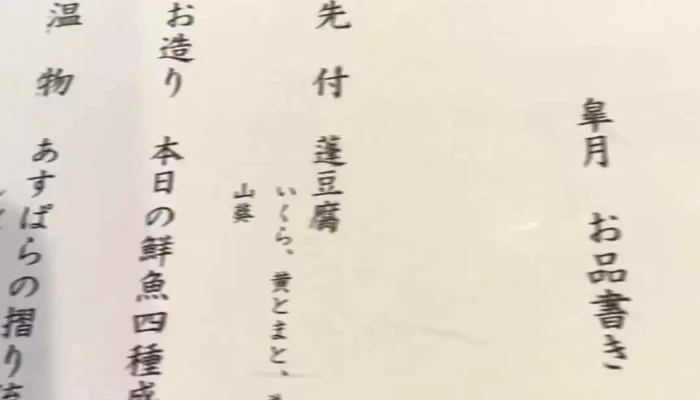 皐月 お品書き
先付 蓬豆腐
いくら、黄とまと、
山葵
お造り 本日の鮮魚四種盛
温物 あすぱらの摺り流